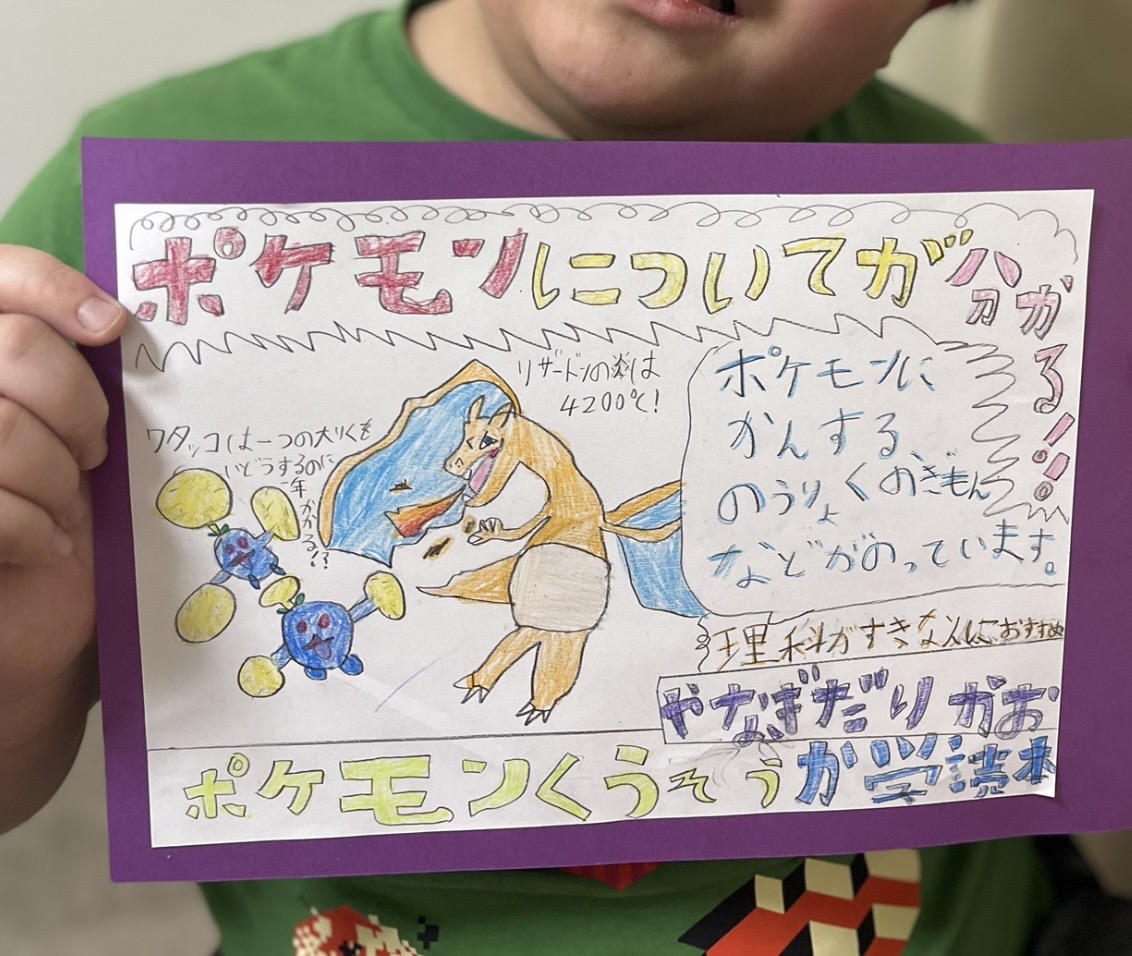 ポケモンについてが分かる!!
リザードンの炎は
4200℃!
ワタッコは一つの大りくを
いどうするのに
一年
かかる!?
ポケモンに
かんする、
のうりょくのぎもん
などがのっています。
理科がすきな人におすすめ
やなぎだりかお
ポケモンくうそうか学読本